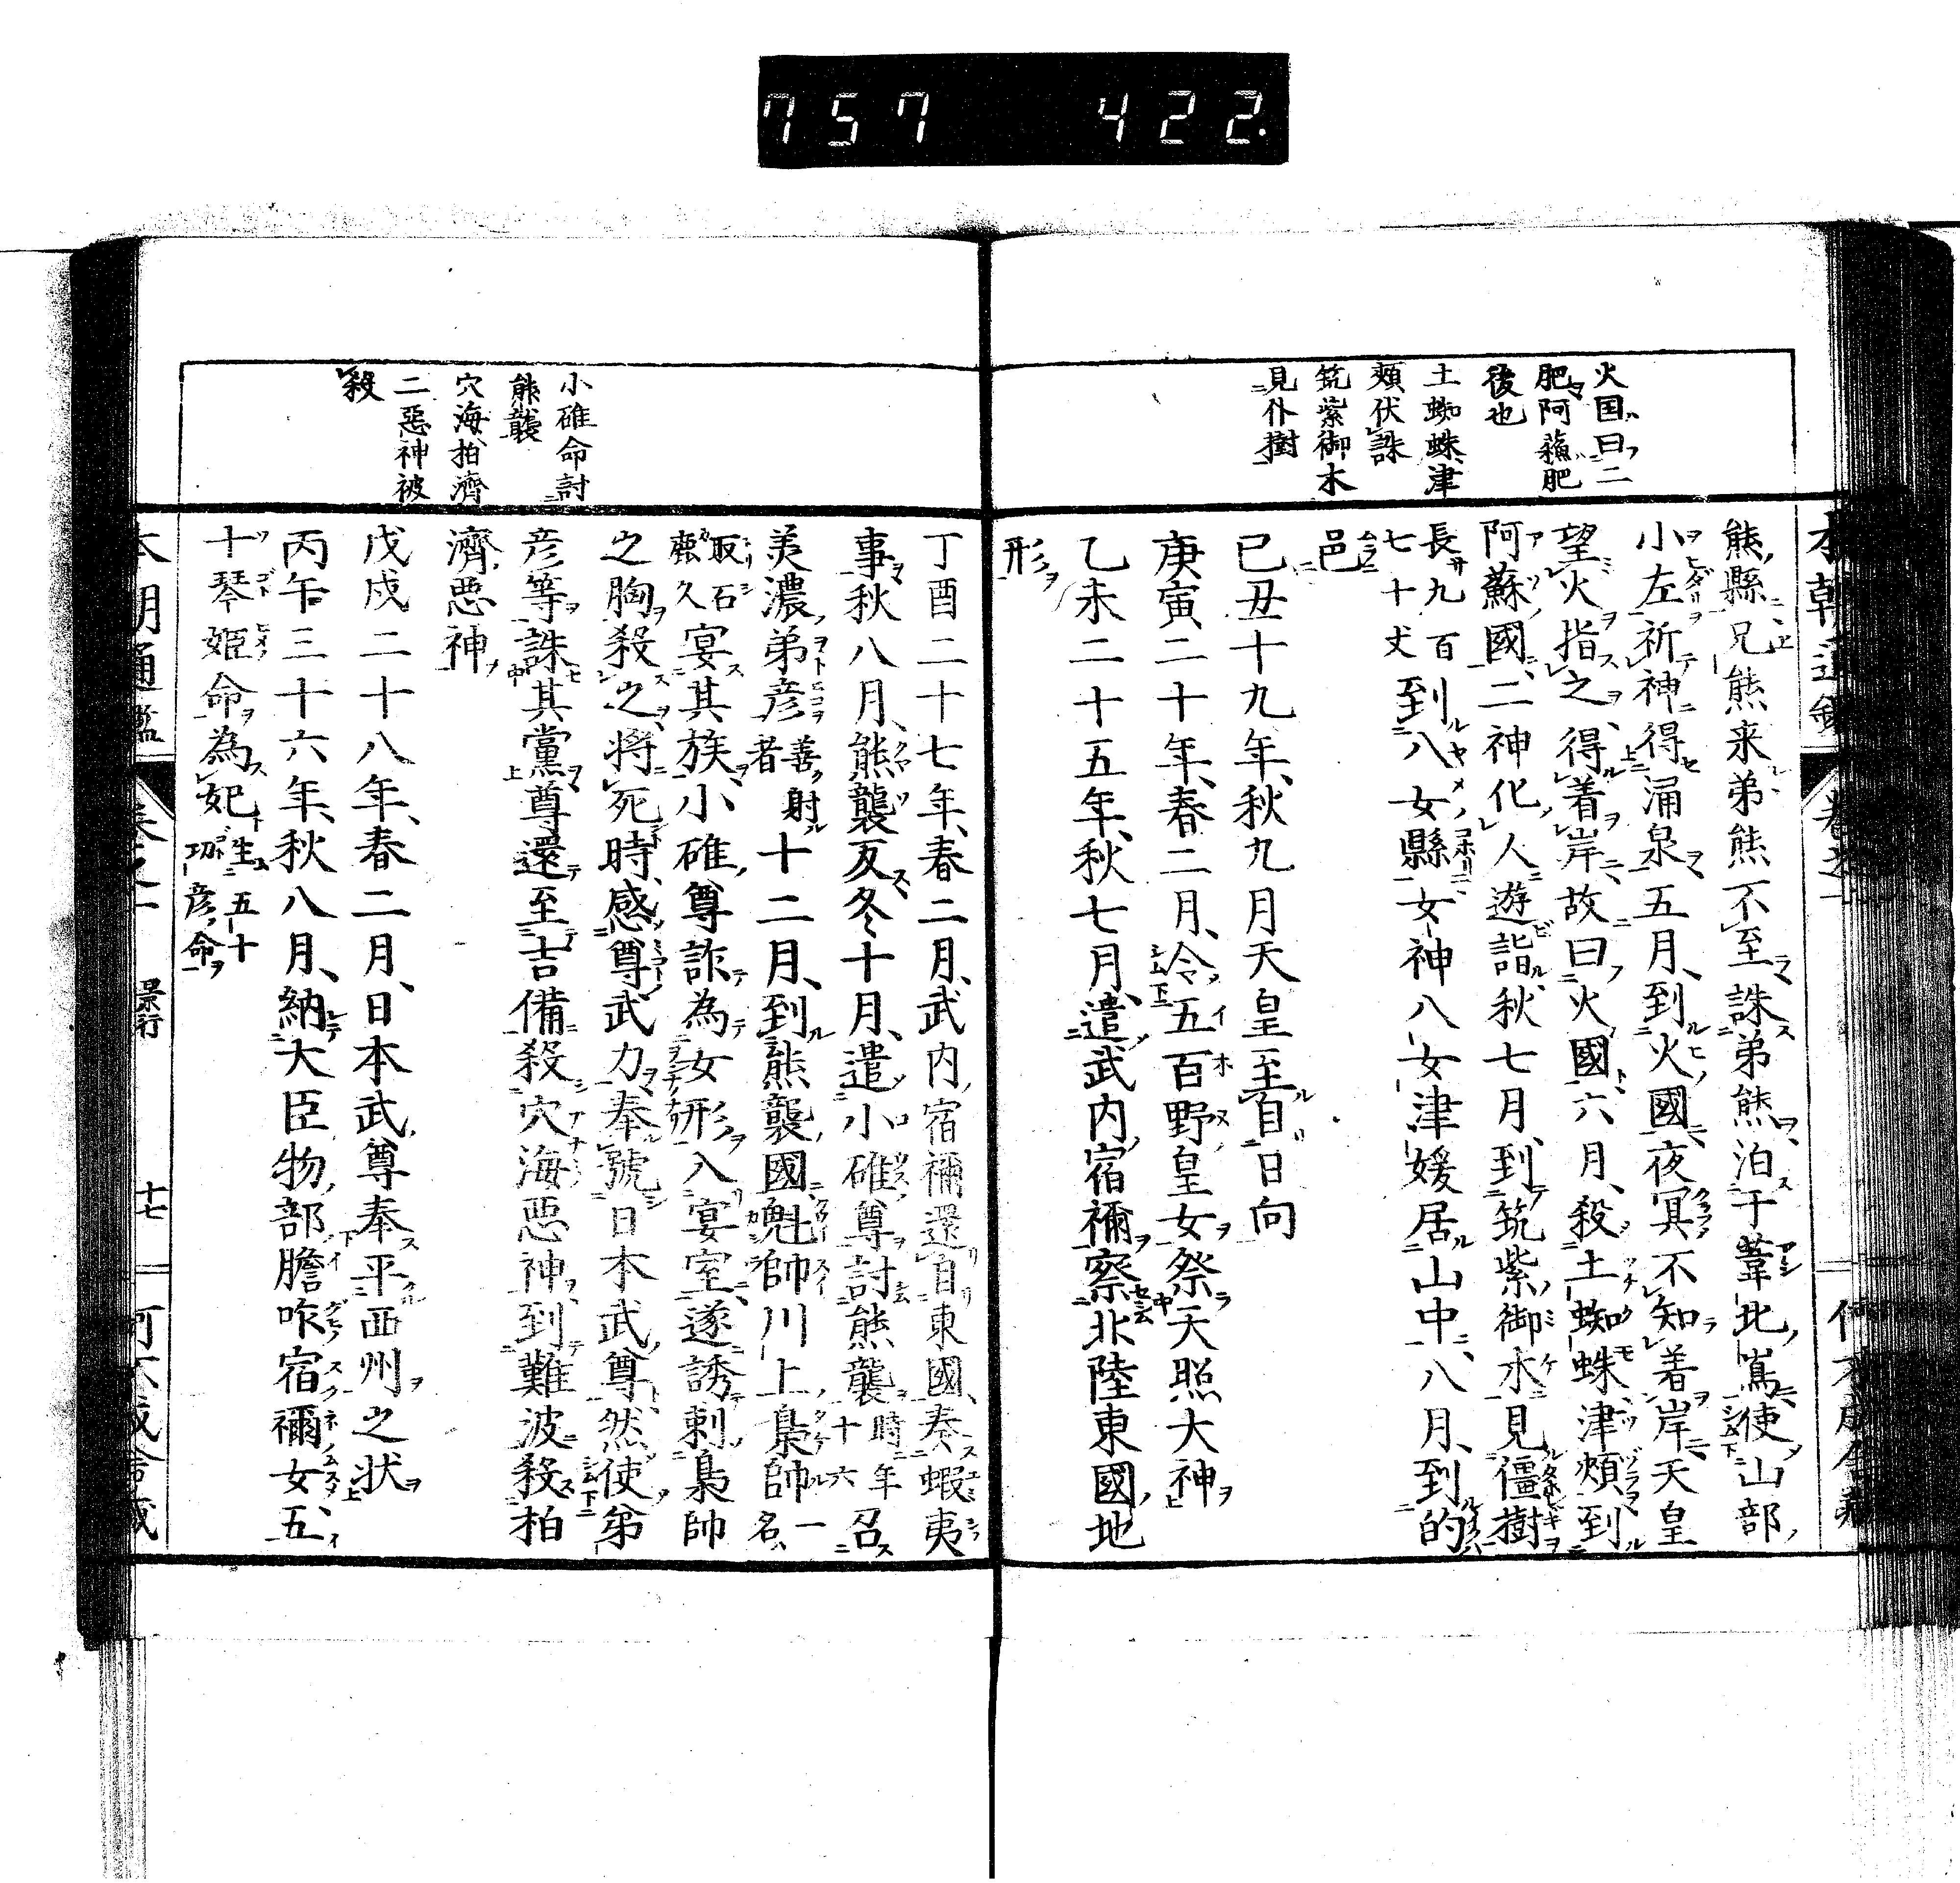 757 422.
火国曰二
肥阿蘓肥
後也
土蜘蛛津
頰伏誅
筑紫御木
見仆樹
熊縣兄熊来弟熊不至誅弟熊泊于葦北嶌使山部
小左祈神得涌泉五月到火國夜冥不知着岸天皇
望火指之得着岸故曰火國六月殺土蜘蛛津頰到
阿蘇國二神化人遊詣秋七月到筑紫御水見僵樹
長九百七十丈到八女縣女神八女津媛居山中八月到的
邑
己丑十九年秋九月天皇至自日向
庚寅二十年春二月令五百野皇女祭天照大神
乙未二十五年秋七月遣武内宿禰察北陸東國地
形
小碓命討
熊襲
穴海拍濟
二惡神被
殺
丁酉二十七年春二月武内宿禰還自東國奏蝦夷
事秋八月熊襲反冬十月遣小碓尊討熊襲時年十六召
美濃弟彦善射者十二月到熊襲國魁帥川上梟帥一名
取石鹿久宴其族小碓尊詐為女形入宴室遂誘刺梟帥
之胸殺之將死時感尊武力奉號日本武尊然使弟
彦等誅其黨尊還至吉備殺穴海悪神到難波殺柏
濟悪神
戊戌二十八年春二月日本武尊奉平西州之状
丙午三十六年秋八月納大臣物部膽咋宿禰女五
十琴姫命為妃生五十功彦命
本朝通鑑 卷之一 景行 十七